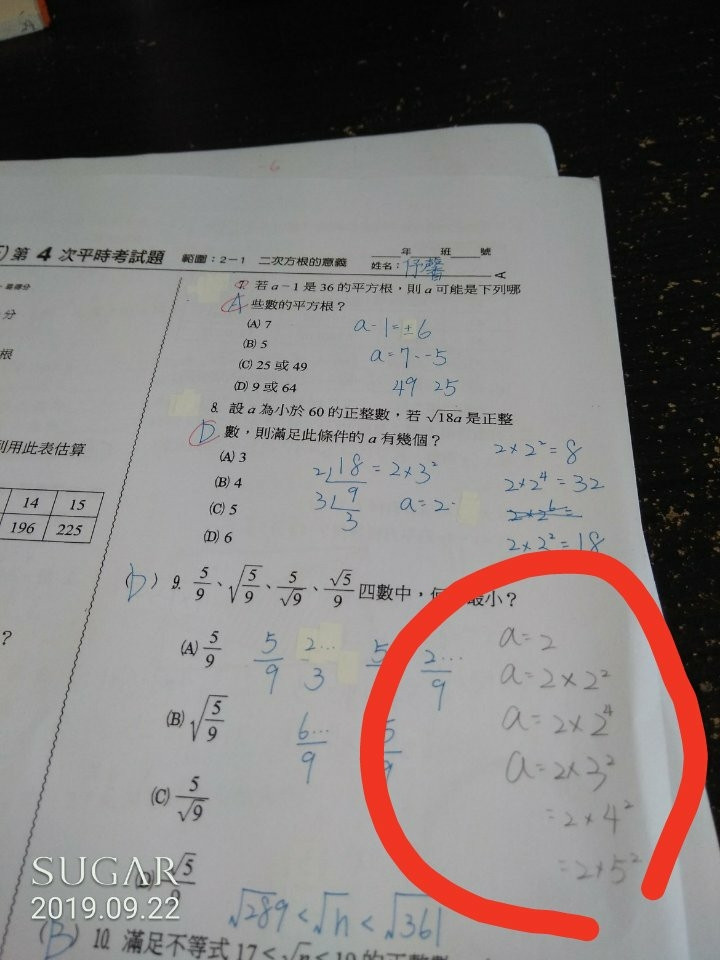 第 4 次平時考試題 範圍：2－1 二次方根的意義
年 班 號
姓名：伃馨
A
分
根
利用此表估算
14 15
196 225
?
7. 若 a－1 是 36 的平方根，則 a 可能是下列哪
(A) 些數的平方根？
(A) 7
(B) 5
(C) 25 或 49
(D) 9 或 64
a-1=±6
a=7、-5
49 25
8. 設 a 為小於 60 的正整數，若 √18a 是正整
(D) 數，則滿足此條件的 a 有幾個？
(A) 3
(B) 4
(C) 5
(D) 6
2 18 = 2×3²
3 9
3
a=2
2×2²=8
2×2⁴=32
2×2⁶=
2×2²=18
(D) 9. 5/9、√(5/9)、5/√9、√5/9 四數中，何 最小？
(A) 5/9
(B) √(5/9)
(C) 5/√9
(D) √5/9
5/9 2.../3 2.../9
6.../9 5/9
a=2
a=2×2²
a=2×2⁴
a=2×3²
=2×4²
=2×5²
√289<√n<√361
(B) 10. 滿足不等式 17<√n<19 的正整數
SUGAR
2019.09.22
6